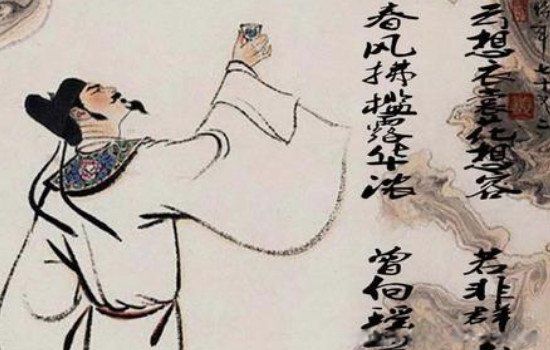 云想衣裳花想容 若非群
春风拂槛露华浓 曾向瑶